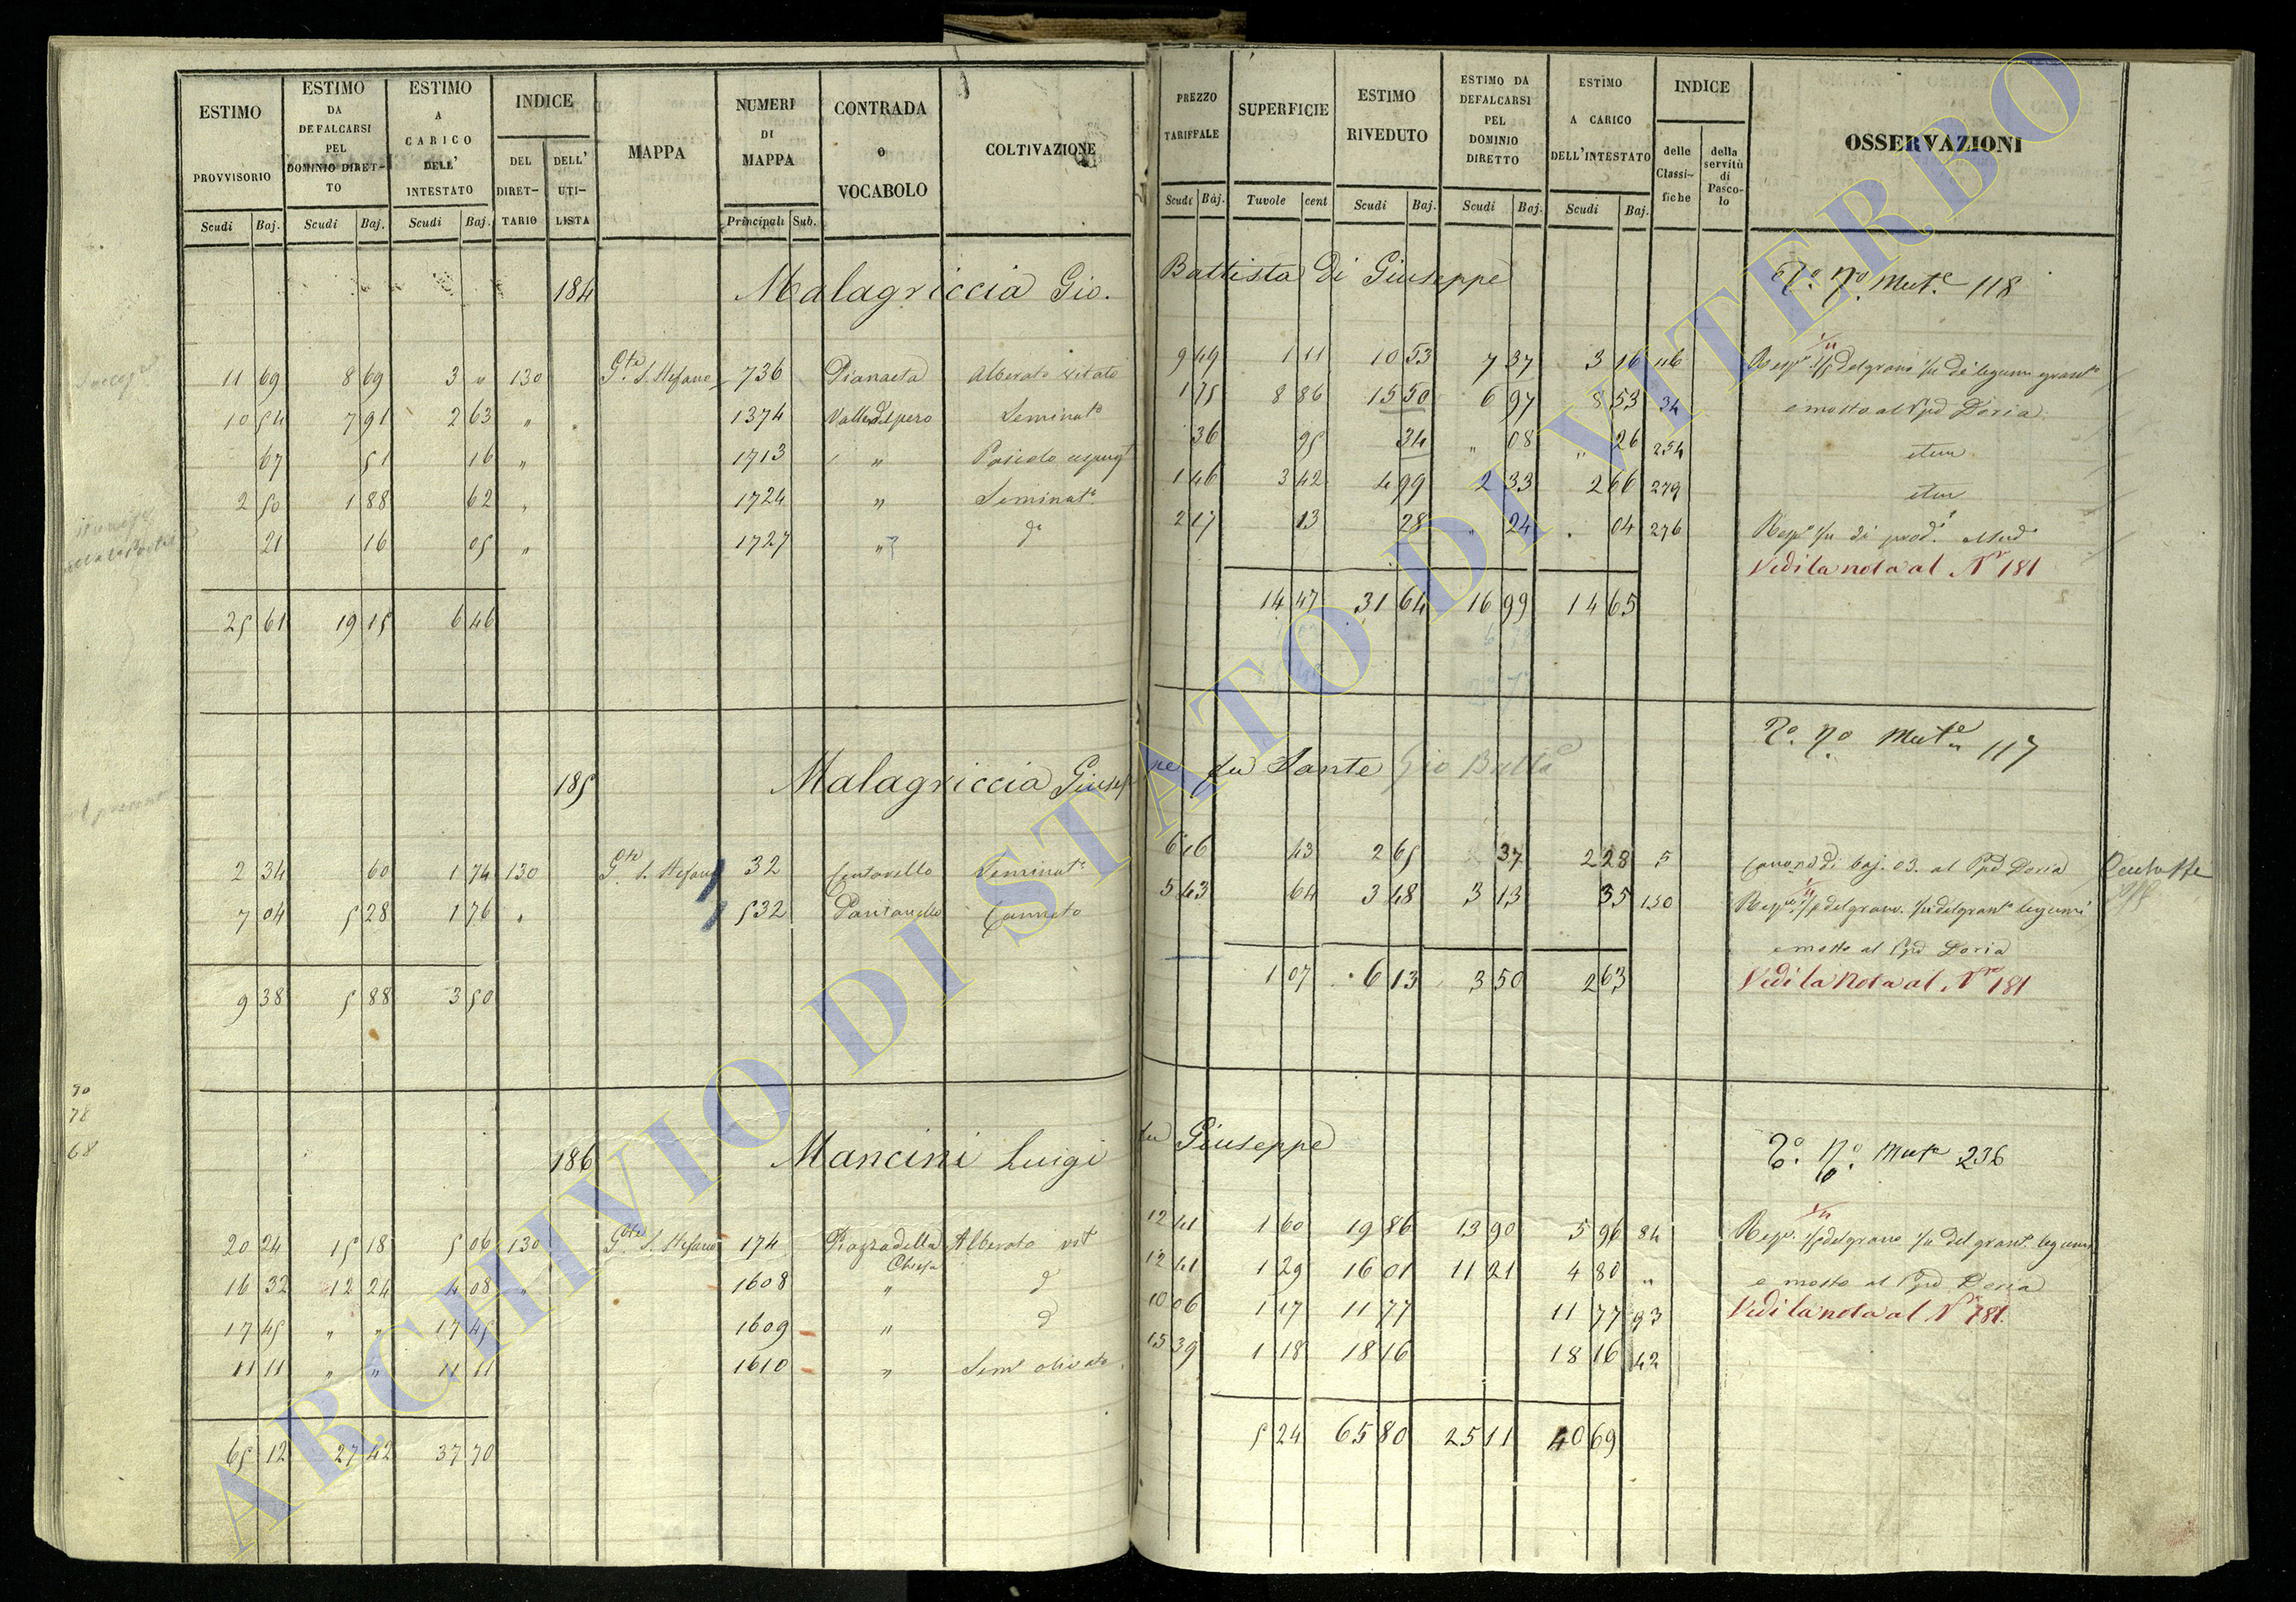 ESTIMO PROVVISORIO Scudi Baj.
ESTIMO DA DEFALCARSI PEL DOMINIO DIRET-TO Scudi Baj.
ESTIMO A CARICO DELL' INTESTATO Scudi Baj.
INDICE DEL DIRET-TARIO DELL' UTI-LISTA
MAPPA
NUMERI DI MAPPA Principali Sub.
CONTRADA o VOCABOLO
COLTIVAZIONE
PREZZO TARIFFALE Scudi Baj.
SUPERFICIE Tavole cent
ESTIMO RIVEDUTO Scudi Baj.
ESTIMO DA DEFALCARSI PEL DOMINIO DIRETTO Scudi Baj.
ESTIMO A CARICO DELL'INTESTATO Scudi Baj.
INDICE delle Classi-fiche della servitù di Pasco-lo
OSSERVAZIONI
184 Malagriccia Gio. Battista di Giuseppe Mut.e 118
11 69 8 69 3 " 130 G.te S. Stefano 736 Pianaeta Alberato vitato 9 49 1 11 10 53 7 37 3 16 116
10 54 7 91 2 63 " 1374 Seminat.o 1 75 8 86 15 50 6 97 8 53 34 e mosto al Ppe Doria
67 51 16 " 1713 " Pascolo 36 95 34 " 08 " 26 254
2 50 1 88 62 " 1724 " Seminat.o 1 46 3 42 4 99 2 33 2 66 279
21 16 05 " 1727 " d.o 2 17 13 28 " 24 04 276
Vedi la nota al N.o 181
25 61 19 15 6 46 14 47 31 64 16 99 14 65
185 Malagriccia Giuseppe fu Sante Gio Batta Mut.e 117
2 34 60 1 74 130 G.te S. Stefano 32 Seminat.o 6 16 43 2 65 37 2 28 5 Canone di baj. 03. al Ppe Doria
7 04 5 28 1 76 532 Pantanello Canneto 5 43 64 3 48 3 13 35 150
e mosto al Ppe Doria
Vedi la Nota al N.ro 181
9 38 5 88 3 50 1 07 6 13 3 50 2 63
186 Mancini Luigi fu Giuseppe Mut.e 236
20 24 15 18 5 06 130 G.te S. Stefano 174 Piazza della Chiesa Alberato vit 12 41 1 60 19 86 13 90 5 96 84
16 32 12 24 4 08 " 1608 " d 12 41 1 29 16 01 11 21 4 80 " e mosto al Ppe Doria
17 45 " " 17 45 1609 " d 10 06 1 17 11 77 11 77 93 Vedi la nota al N.ro 181.
11 11 " " 11 11 1610 " Sem olivato 15 39 1 18 18 16 18 16 42
65 12 27 42 37 70 5 24 65 80 25 11 40 69
70
78
68
ARCHIVIO DI STATO DI VITERBO